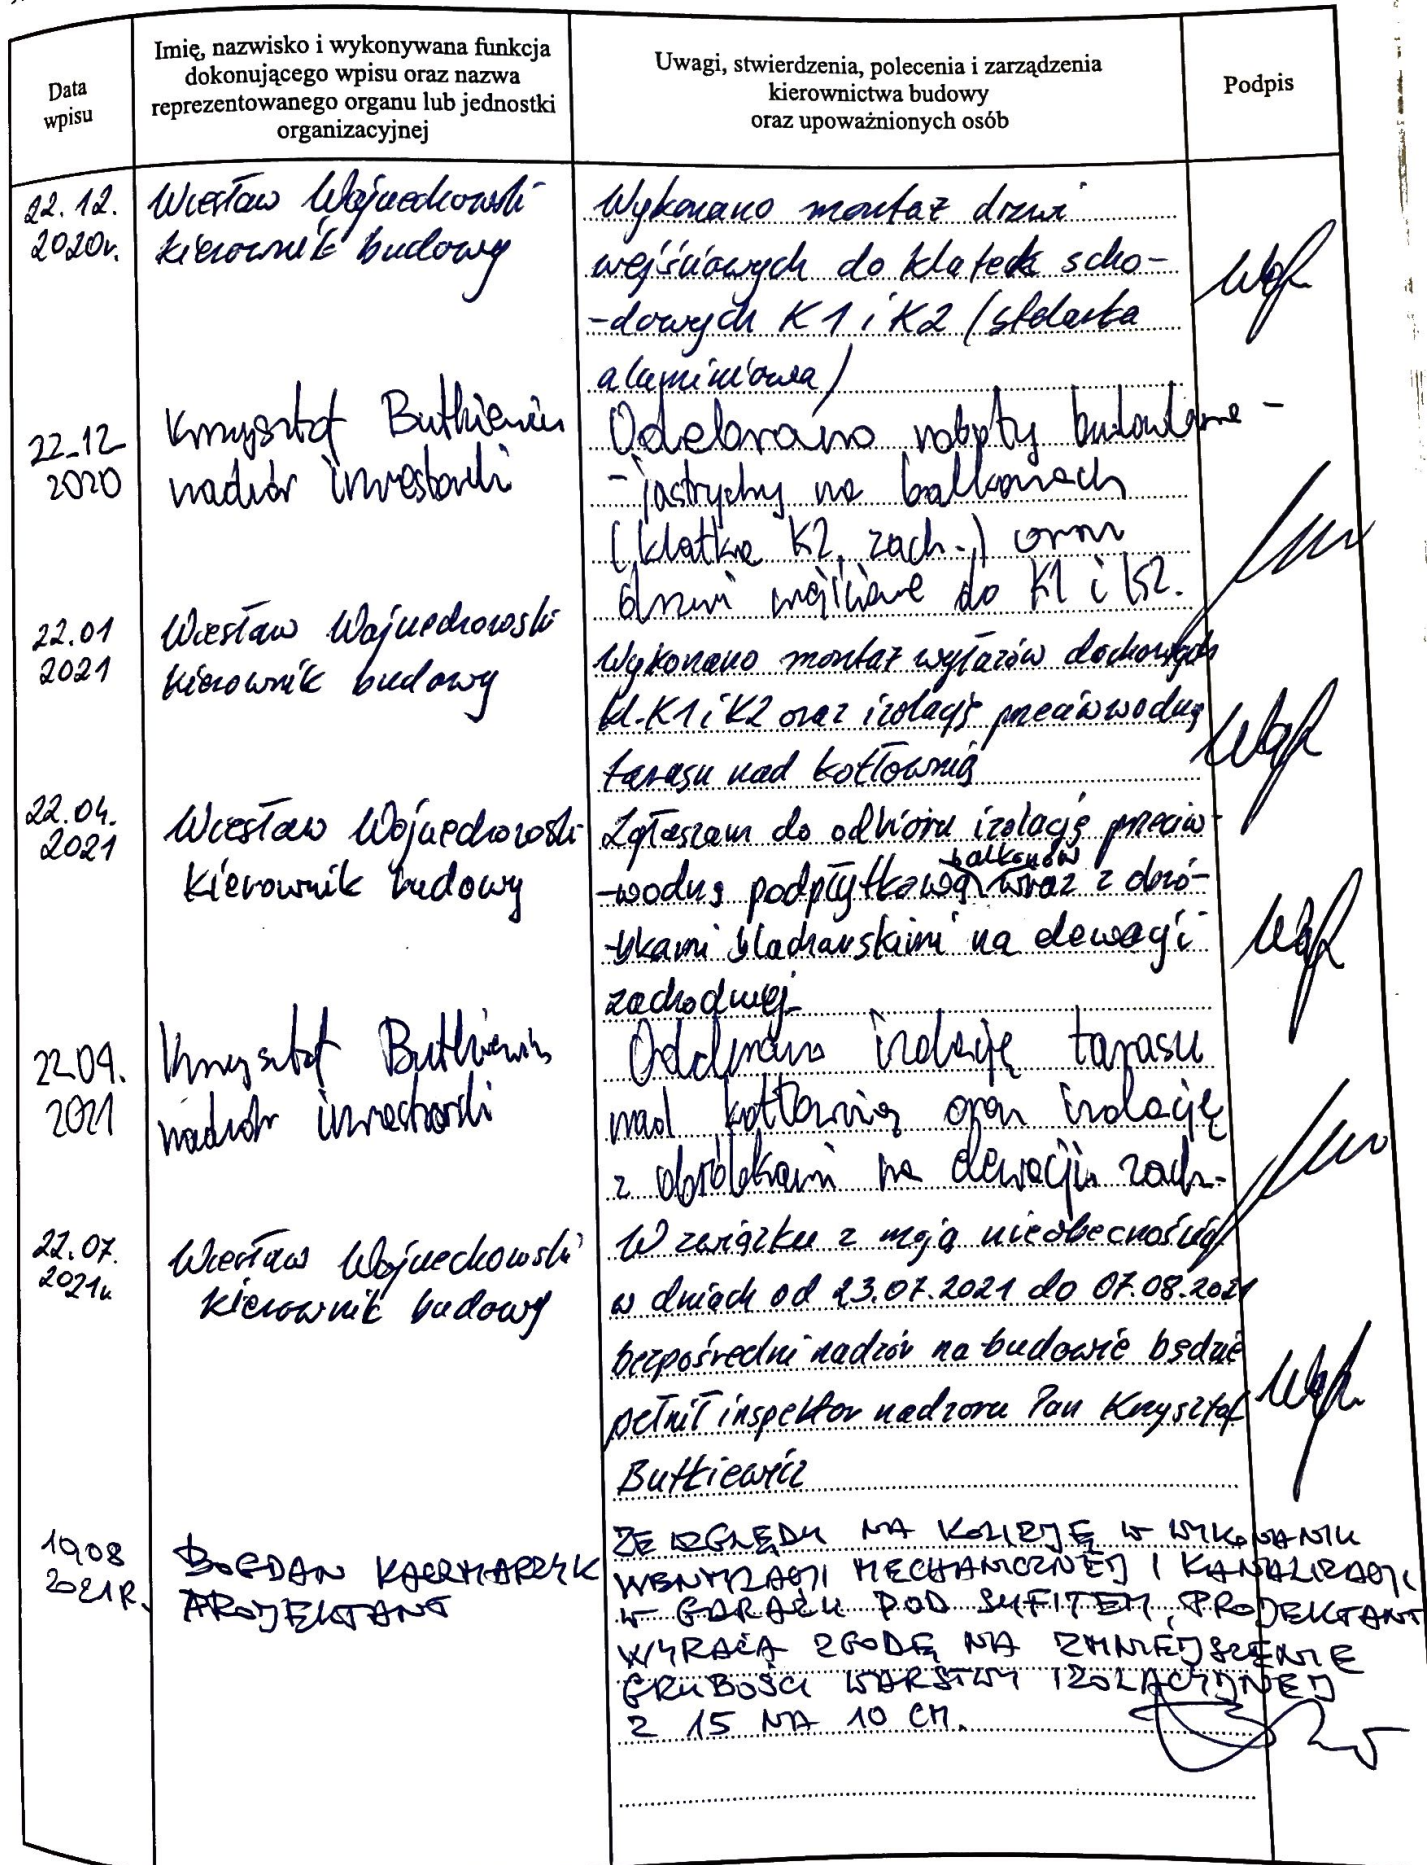 Data
wpisu
Imię, nazwisko i wykonywana funkcja
dokonującego wpisu oraz nazwa
reprezentowanego organu lub jednostki
organizacyjnej
Uwagi, stwierdzenia, polecenia i zarządzenia
kierownictwa budowy
oraz upoważnionych osób
Podpis
22.12.
2020r.
Wiesław Wojciechowski
kierownik budowy
Wykonano montaż drzwi
wejściowych do klatek scho-
-dowych K1 i K2 (stolarka
aluminiowa)
22.12
2020
Krzysztof Butkiewicz
nadzór inwestorski
Odebrano roboty budowlane -
- jastrychy na balkonach
(klatka K2, zach.) oraz
drzwi wejściowe do K1 i K2.
22.01
2021
Wiesław Wojciechowski
kierownik budowy
Wykonano montaż wyłazów dachowych
kl. K1 i K2 oraz izolację przeciwwodną
tarasu nad kotłownią
22.04.
2021
Wiesław Wojciechowski
kierownik budowy
Zgłaszam do odbioru izolację przeciw-
balkonów
-wodną podpłytkową wraz z obró-
-bkami blacharskimi na elewacji
zachodniej
22.04.
2021
Krzysztof Butkiewicz
nadzór inwestorski
Odebrano izolację tarasu
nad kotłownią oraz izolację
z obróbkami na elewacji zach.
22.07.
2021r
Wiesław Wojciechowski
kierownik budowy
W związku z moją nieobecnością
w dniach od 23.07.2021 do 07.08.2021
bezpośredni nadzór na budowie będzie
pełnił inspektor nadzoru Pan Krzysztof
Butkiewicz
19.08
2021R.
BOGDAN KACZMARCZYK
PROJEKTANT
ZE WZGLĘDU NA KOLIZJĘ W WYKONANIU
WENTYLACJI MECHANICZNEJ I KANALIZACJI
W GARAŻU POD SUFITEM, PROJEKTANT
WYRAŻA ZGODĘ NA ZMNIEJSZENIE
GRUBOŚCI WARSTWY IZOLACYJNEJ
Z 15 NA 10 CM.